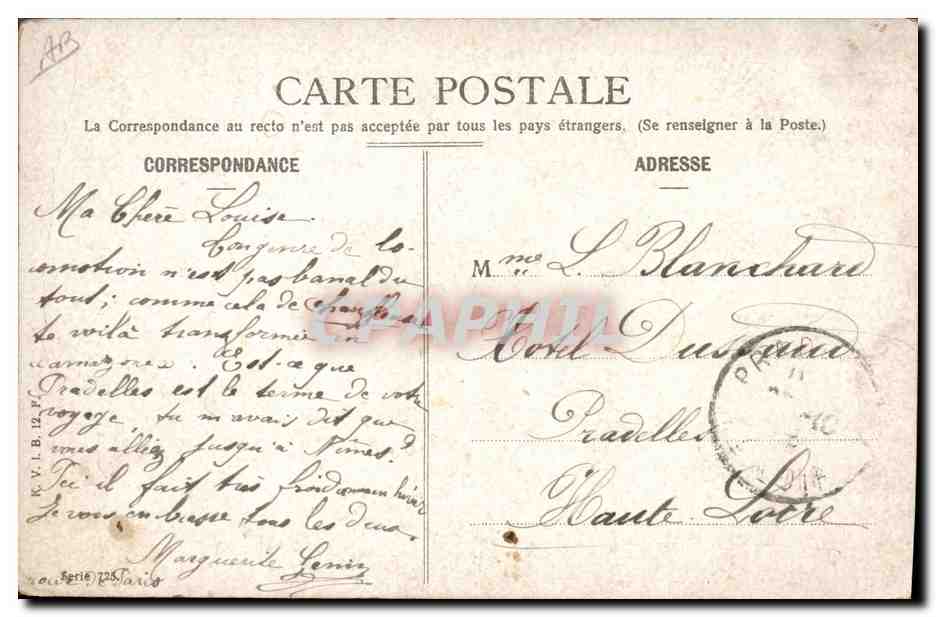 AB
CARTE POSTALE
La Correspondance au recto n'est pas acceptée par tous les pays étrangers. (Se renseigner à la Poste.)
CORRESPONDANCE
Ma Chère Louise.
Ton genre de lo-
comotion n'est pas banal du
tout; comme cela de
te voilà transformée en
amazone. Est-ce que
Pradelles est le terme de votre
voyage, tu m'avais dit que
vous alliez jusqu'à Nîmes?
Ici il fait très froid comme hiver
Je vous embrasse tous les deux.
Marguerite
Paris
K. V. I. B. 12. P.
Serie 725.
ADRESSE
M me L. Blanchard
Hotel Dussaud
Pradelles
Haute-Loire
PRAD
CPAPHIL